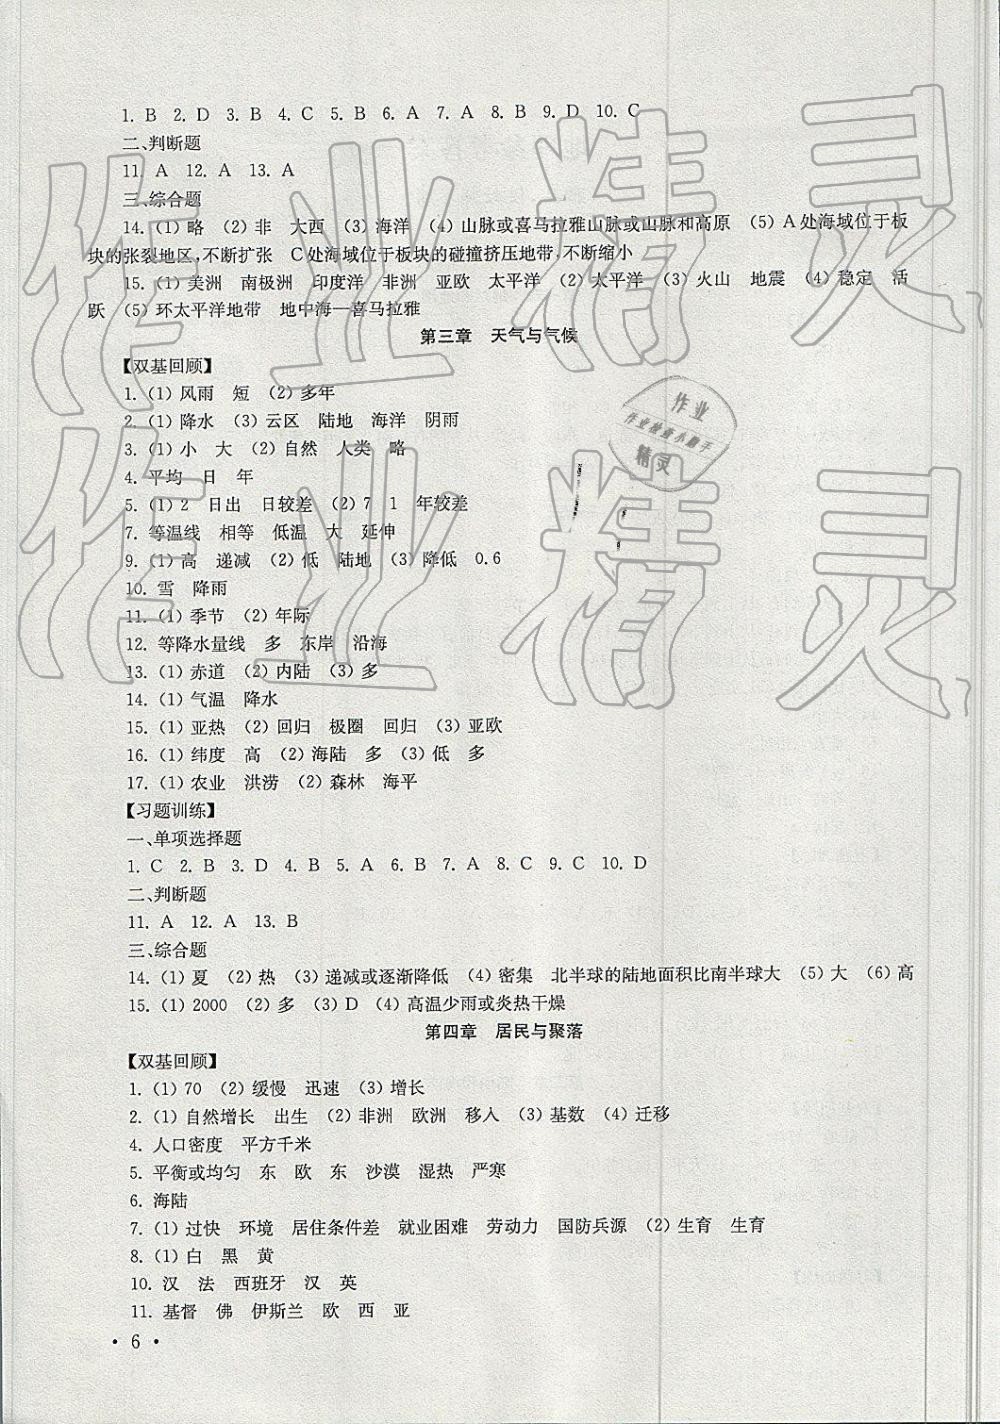 1. B 2. D 3. B 4. C 5. B 6. A 7. A 8. B 9. D 10. C
二、判断题
11. A 12. A 13. A
三、综合题
14. (1) 略 (2) 非 大西 (3) 海洋 (4) 山脉或喜马拉雅山脉或山脉和高原 (5) A 处海域位于板
块的张裂地区,不断扩张 C 处海域位于板块的碰撞挤压地带,不断缩小
15. (1) 美洲 南极洲 印度洋 非洲 亚欧 太平洋 (2) 太平洋 (3) 火山 地震 (4) 稳定 活
跃 (5) 环太平洋地带 地中海—喜马拉雅
第三章 天气与气候
【双基回顾】
1. (1) 风雨 短 (2) 多年
2. (1) 降水 (3) 云区 陆地 海洋 阴雨
3. (1) 小 大 (2) 自然 人类 略
4. 平均 日 年
5. (1) 2 日出 日较差 (2) 7 1 年较差
7. 等温线 相等 低温 大 延伸
9. (1) 高 递减 (2) 低 陆地 (3) 降低 0.6
10. 雪 降雨
11. (1) 季节 (2) 年际
12. 等降水量线 多 东岸 沿海
13. (1) 赤道 (2) 内陆 (3) 多
14. (1) 气温 降水
15. (1) 亚热 (2) 回归 极圈 回归 (3) 亚欧
16. (1) 纬度 高 (2) 海陆 多 (3) 低 多
17. (1) 农业 洪涝 (2) 森林 海平
【习题训练】
一、单项选择题
1. C 2. B 3. D 4. B 5. A 6. B 7. A 8. C 9. C 10. D
二、判断题
11. A 12. A 13. B
三、综合题
14. (1) 夏 (2) 热 (3) 递减或逐渐降低 (4) 密集 北半球的陆地面积比南半球大 (5) 大 (6) 高
15. (1) 2000 (2) 多 (3) D (4) 高温少雨或炎热干燥
第四章 居民与聚落
【双基回顾】
1. (1) 70 (2) 缓慢 迅速 (3) 增长
2. (1) 自然增长 出生 (2) 非洲 欧洲 移入 (3) 基数 (4) 迁移
4. 人口密度 平方千米
5. 平衡或均匀 东 欧 东 沙漠 湿热 严寒
6. 海陆
7. (1) 过快 环境 居住条件差 就业困难 劳动力 国防兵源 (2) 生育 生育
8. (1) 白 黑 黄
10. 汉 法 西班牙 汉 英
11. 基督 佛 伊斯兰 欧 西 亚
• 6 •
作业精灵
作业精灵
作业
作业检查小助手
精灵